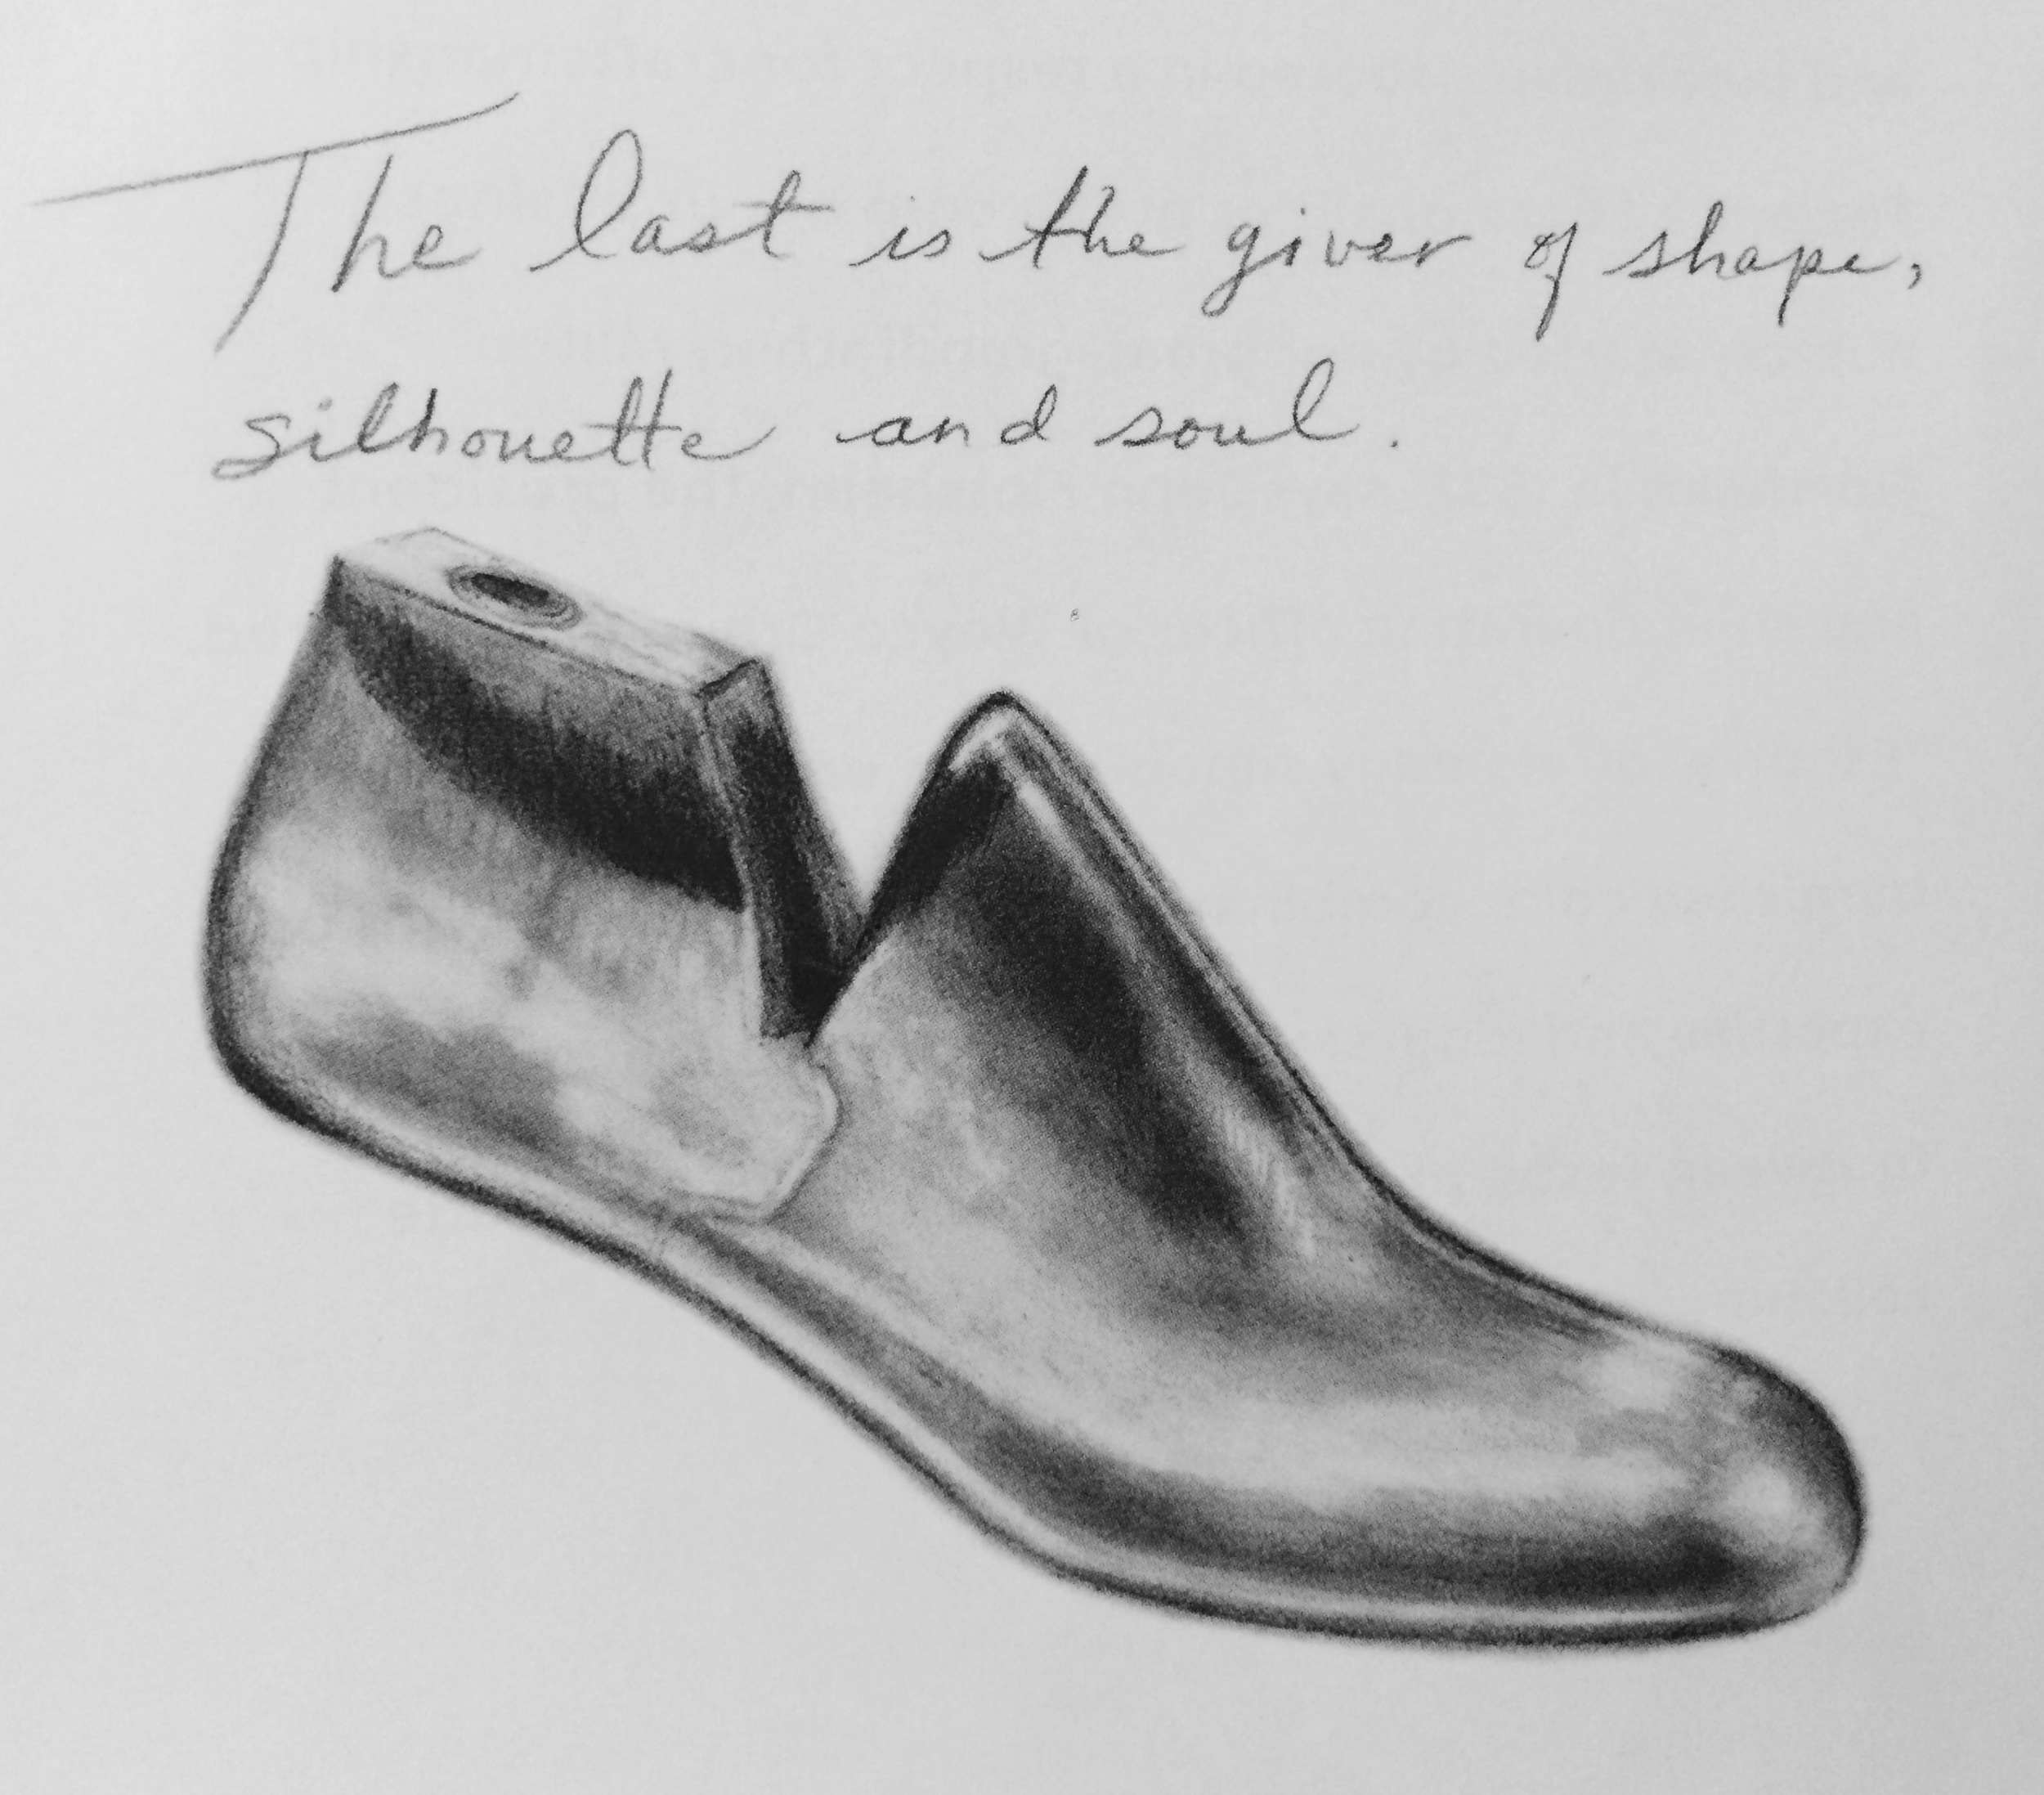 The last is the giver of shape,
silhouette and soul.